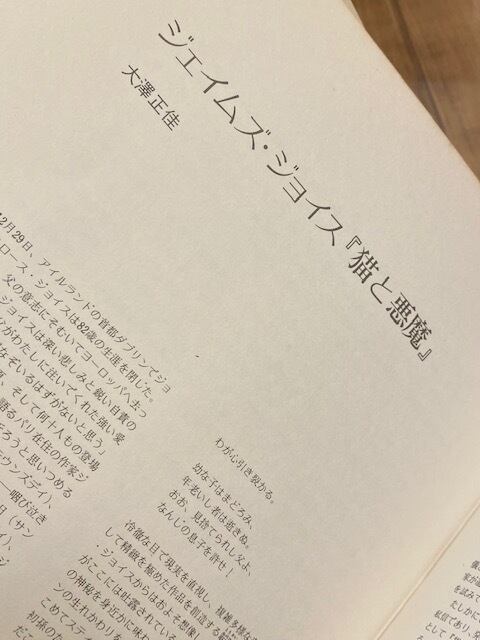 ジェイムズ・ジョイス『猫と悪魔』
大澤正佳
2月29日、アイルランドの首都ダブリンでジョ
ロース・ジョイスは82歳の生涯を閉じた。
父の意志にそむいてヨーロッパへ去っ
ジョイスは深い悲しみと鋭い自責の
父がわたしに注いでくれた強い愛
なぞいるはずがないと思う」
、そして何十人もの登場
語るパリ在住の作家ジ
だろうと思いつめる
ウンズデイ)、
一咽び泣き
日(サン
イ)、
ジ
わが心引き裂かる。
幼な子はまどろみ、
年老いし者は逝きぬ。
おお、見捨てられし父よ、
なんじの息子を許せ!
冷徹な目で現実を直視し、複雑多様な
して精緻を極めた作品を創造する
・ジョイスからはおよそ想像し
がここには吐露されている
の神秘を身近かに味わ
ンの生れかわりを
こめてスティ
初孫のた
だこ
家が
を試みて
たしかに
私信であり、
として「